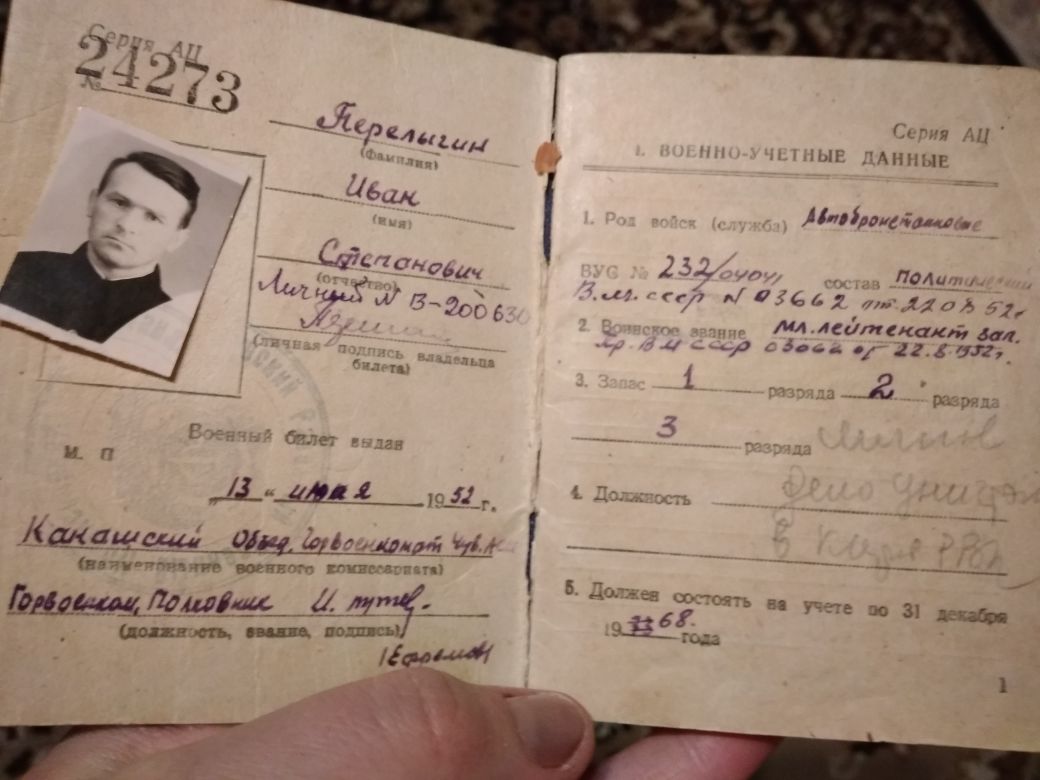 Серия АЦ
№ 24273
Перелыгин
(фамилия)
Иван
(имя)
Степанович
(отчество)
Личный N В-200630
(личная подпись владельца
билета)
Военный билет выдан
М. П
„13 " июля 1952 г.
Канашский Объед. Горвоенкомат Чув.
(наименование военного комиссариата)
Горвоенком, Полковник
(должность, звание, подпись)
/Ефремов/
Серия АЦ
I. ВОЕННО-УЧЕТНЫЕ ДАННЫЕ
1. Род войск (служба) Автобронетанковые
ВУС № 232/04041 состав политический
В.М. СССР N 03662 от 22.08.52г
2. Воинское звание мл. лейтенант зап.
Пр. ВМ СССР 03662 от 22.8.1952г.
3. Запас 1 разряда 2 разряда
3 разряда Личное
4. Должность дело
В
5. Должен состоять на учете по 31 декабря
19 68. года
1